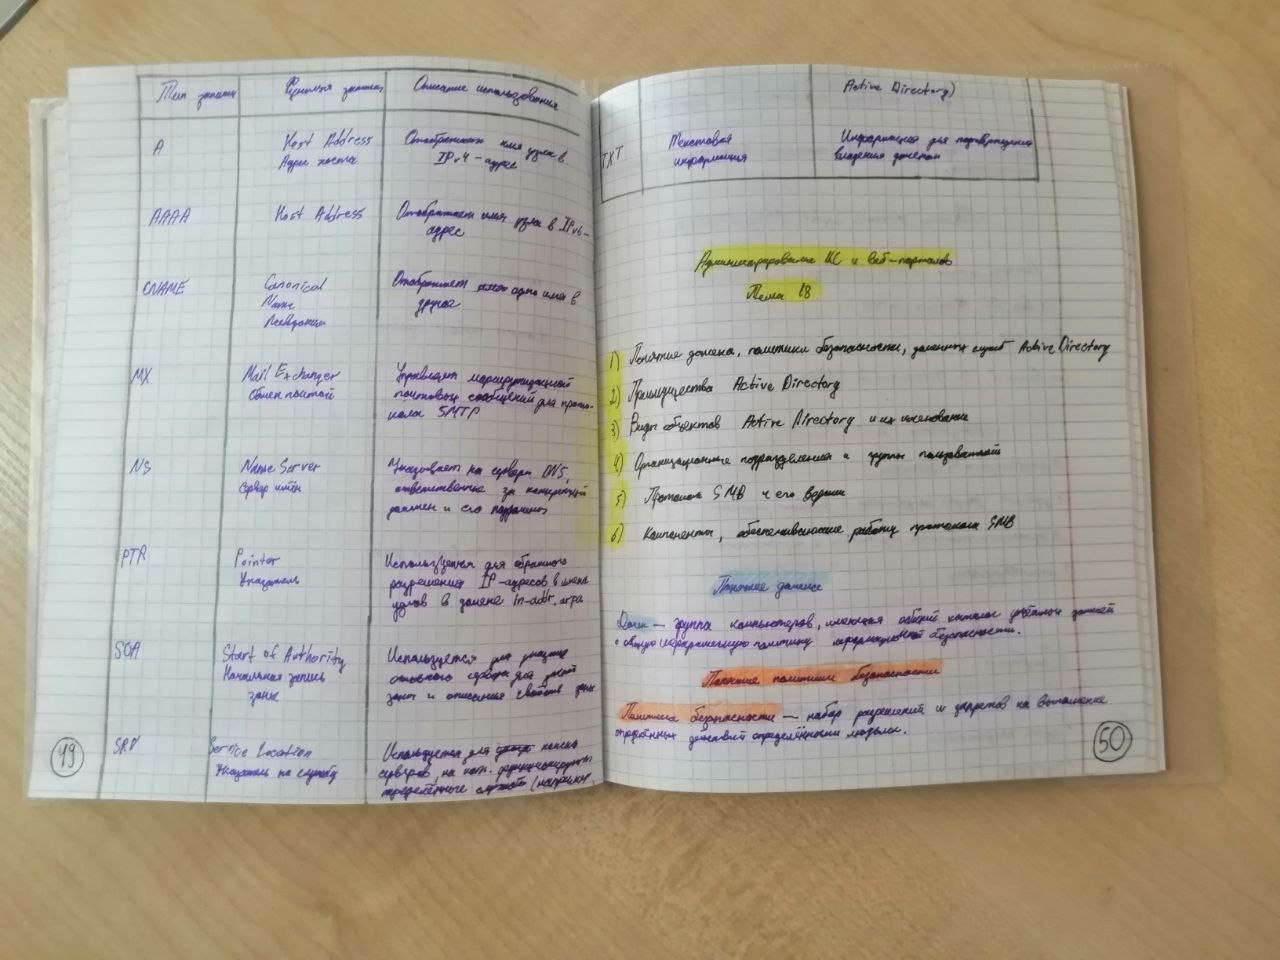 Тип записи Функция записи Описание использования
A Host Address Отображает имя узла в
Адрес хоста IPv4-адрес
AAAA Host Address Отображает имя узла в IPv6-
адрес
CNAME Canonical Отображает одно имя в
Name другое
Псевдоним
MX Mail Exchanger Управляет маршрутизацией
Обмен почтой почтовых сообщений для прото-
кола SMTP
NS Name Server Указывает на сервера DNS,
Сервер имён ответственные за конкретный
домен и его поддомены
PTR Pointer Используется для обратного
Указатель разрешения IP-адресов в имена
узлов в домене in-addr.arpa
SOA Start of Authority Используется для указания
Начальная запись основного сервера для данной
зоны зоны и описания свойств зоны
SRV Service Location Используется для поиска
Указатель на службу серверов, на кот. функционируют
определённые службы (например,
49
Active Directory)
TXT Текстовая Информация для подтверждения
информация владения доменом
Администрирование ИС и веб-порталов
Тема 18
1) Понятие домена, политики безопасности, доменных служб Active Directory
2) Преимущества Active Directory
3) Виды объектов Active Directory и их именование
4) Организационные подразделения и группы пользователей
5) Протокол SMB и его версии
6) Компоненты, обеспечивающие работу протокола SMB
Понятие домена
Домен — группа компьютеров, имеющая общий каталог учётных записей
и общую политику информационной безопасности.
Понятие политики безопасности
Политика безопасности — набор разрешений и запретов на выполнение
определённых действий определёнными людьми.
50